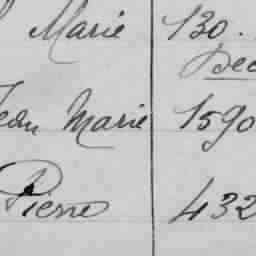 Marie 130.
Dec
Jean Marie 1590
Pierre 432